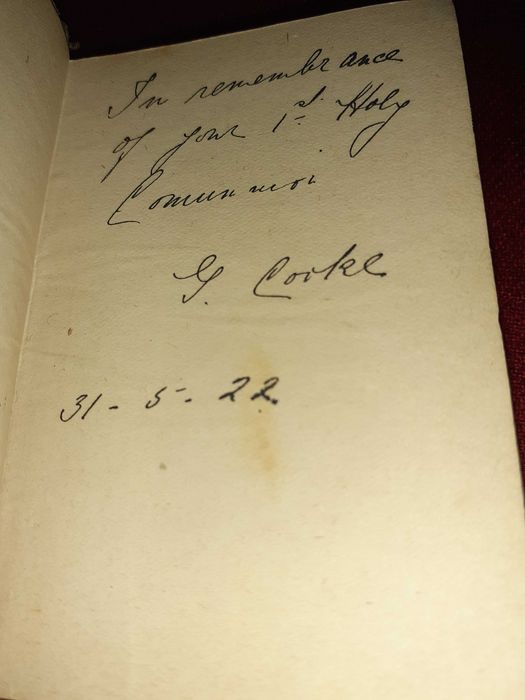 In remembrance
of your 1st Holy
Communion
G. Cooke
31 - 5 - 22.